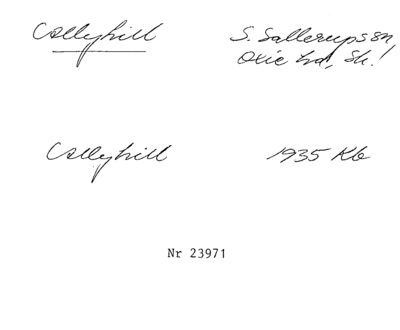 Collyhill S. Sallerups sn,
Oxie hd, Sk.!
Collyhill 1935 Kb
Nr 23971